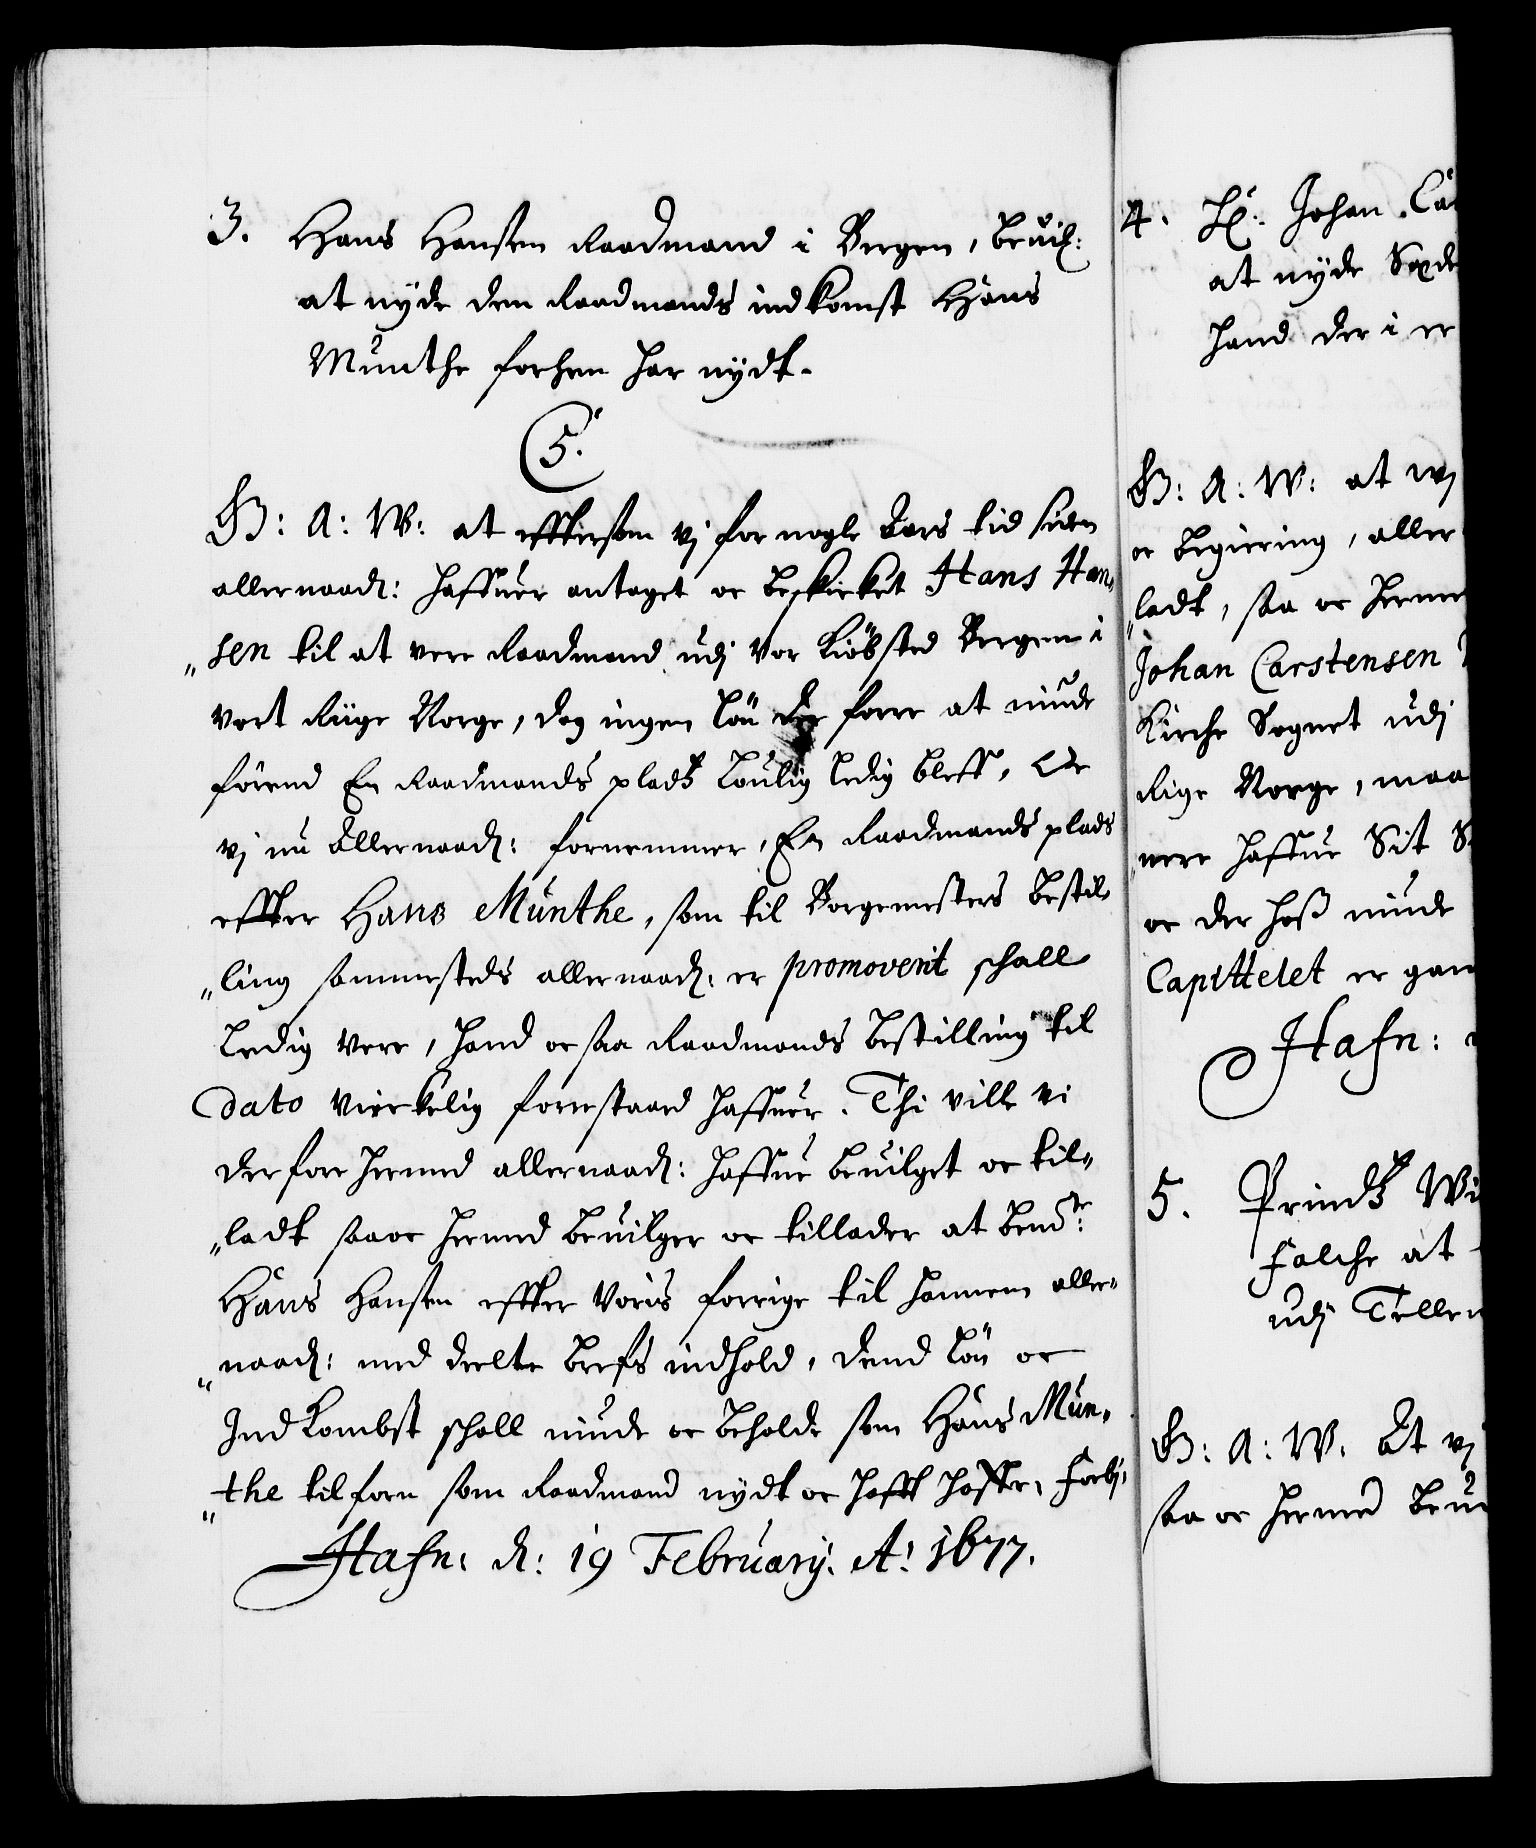 3. Hans Hansen Raadmand i Bergen, Bevil:
at nyde den Raadmands indkomst Hans
Munthe forhen har nydt.
C 5.
G: A: W: at effttersom vj for nogle Aars tid siden
allernaad: haffuer antaget oc beskicket Hans Han„
„sen til at vere Raadmand udj vor Kiöbsted Bergen i
vort Riige Norge, dog ingen Lön der forre at niude
förend En Raadmands plads loulig ledig bleff, Oc
vj nu Allernaad: fornemmer, En Raadmands plads
effter Hans Munthe, som til Borgemesters bestil
„ling sammesteds allernaad: er promoverit schall
Ledig vere, hand ocsaa Raadmands bestilling til
dato virkelig forrestaaed haffuer. Thi ville vi
derfore hermed allernaad: haffue beuilget oc til„
„ladt saaoc hermed beuilger oc tillader at bemte:
Hans Hansen effter Voris forrige til hannem aller„
„naad: med deelte brefs indhold, dend Lön oc
Indkombst schall niude oc beholde som Hans Mun„
„the tilforn som Raadmand nydt oc hafft haffr, Forbj:
Hafn: d: 19 February: A: 1677.
4. Hr: Johan Ca
at nyde Sode
hand der i er
G: A: W: at wj
oc begiering, aller
„ladt, saa oc herme
Johan Carstensen
Kirche Sognet udj
Rige Norge, maa
„nere haffue Sit S
oc der hoß niude
Capittelet er gan
Hafn:
5. Printz Wi
Falche at
udj Tellem
G: A: W: At vj
saa oc hermed beui